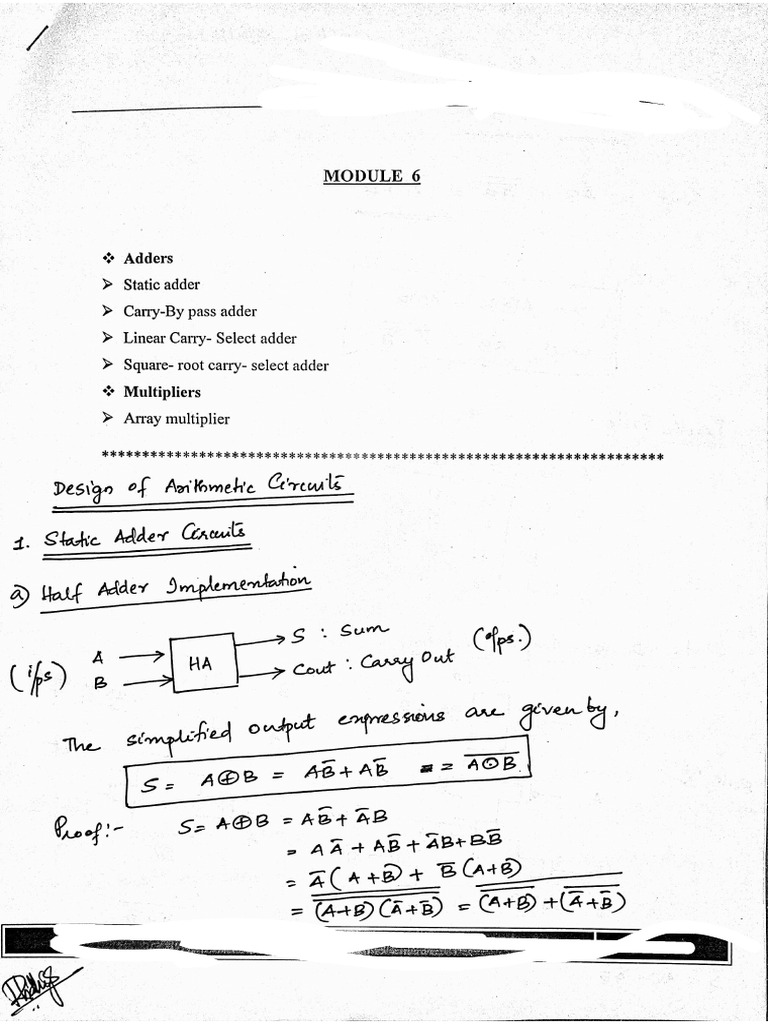 MODULE 6
❖ Adders
➢ Static adder
➢ Carry-By pass adder
➢ Linear Carry- Select adder
➢ Square- root carry- select adder
❖ Multipliers
➢ Array multiplier
**********************************************************************
Design of Arithmetic Circuits
1. Static Adder Circuits
a) Half Adder Implementation
(i/ps) A B HA S : Sum (o/ps.)
Cout : Carry Out
The simplified output expressions are given by,
S = A⊕B = AB̅ + AB̅ = \overline{A⊙B}
Proof:- S = A⊕B = AB̅ + A̅B
= AA̅ + AB̅ + A̅B + BB̅
= A̅(A+B) + B̅(A+B)
= \overline{\overline{(A+B)(A̅+B̅)}} = \overline{\overline{(A+B)} + \overline{(A̅+B̅)}}